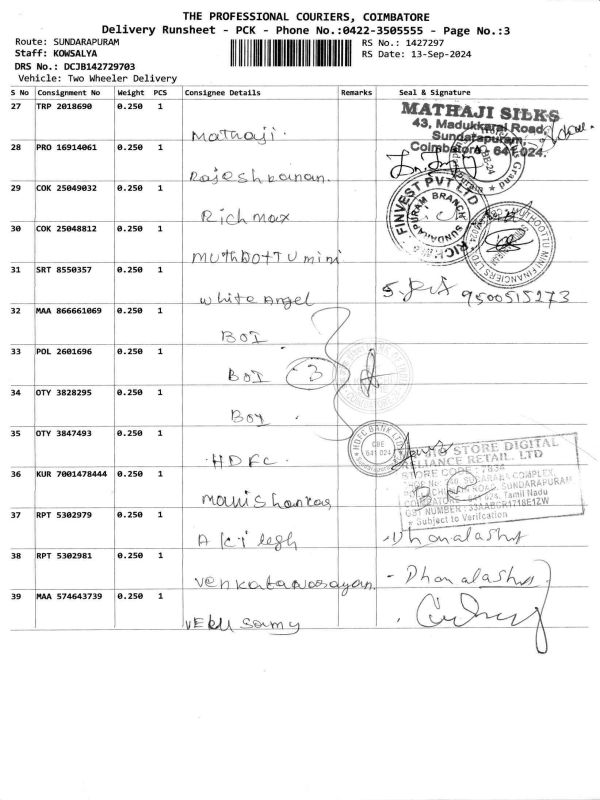 THE PROFESSIONAL COURIERS, COIMBATORE
Delivery Runsheet - PCK - Phone No.:0422-3505555 - Page No.:3
Route: SUNDARAPURAM
RS No.: 1427297
Staff: KOWSALYA
RS Date: 13-Sep-2024
DRS No.: DCJB142729703
Vehicle: Two Wheeler Delivery
S No Consignment No Weight PCS Consignee Details Remarks Seal & Signature
27 TRP 2018690 0.250 1 Mathaji.
MATHAJI SILKS
43, Madukkarai Road,
Sundarapuram,
Coimbatore - 641 024.
28 PRO 16914061 0.250 1 Rajeshkannan.
29 COK 25049032 0.250 1 Richmax
FINVEST PVT LTD
SUNDARAPURAM BRANCH
30 COK 25048812 0.250 1 MUTHOOTTU mini
MUTHOOTTU MINI FINANCIERS LTD
31 SRT 8550357 0.250 1 White Angel
9500515273
32 MAA 866661069 0.250 1 BOI
33 POL 2601696 0.250 1 BOI 3
34 OTY 3828295 0.250 1 BOI
35 OTY 3847493 0.250 1 HDFC
HDFC BANK LTD
CBE
641 024
36 KUR 7001478444 0.250 1 Manishankar
STORE DIGITAL
RELIANCE RETAIL. LTD
STORE CODE : 7834
COMPLEX,
ROAD, SUNDARAPURAM
COIMBATORE - 641 024, Tamil Nadu
GST NUMBER : 33AABCR1718E1ZW
* Subject to Verification
37 RPT 5302979 0.250 1 Akilesh
- Dhanalashmi
38 RPT 5302981 0.250 1 Venkatanarayan.
- Dhanalashmi
39 MAA 574643739 0.250 1 VELU Samy